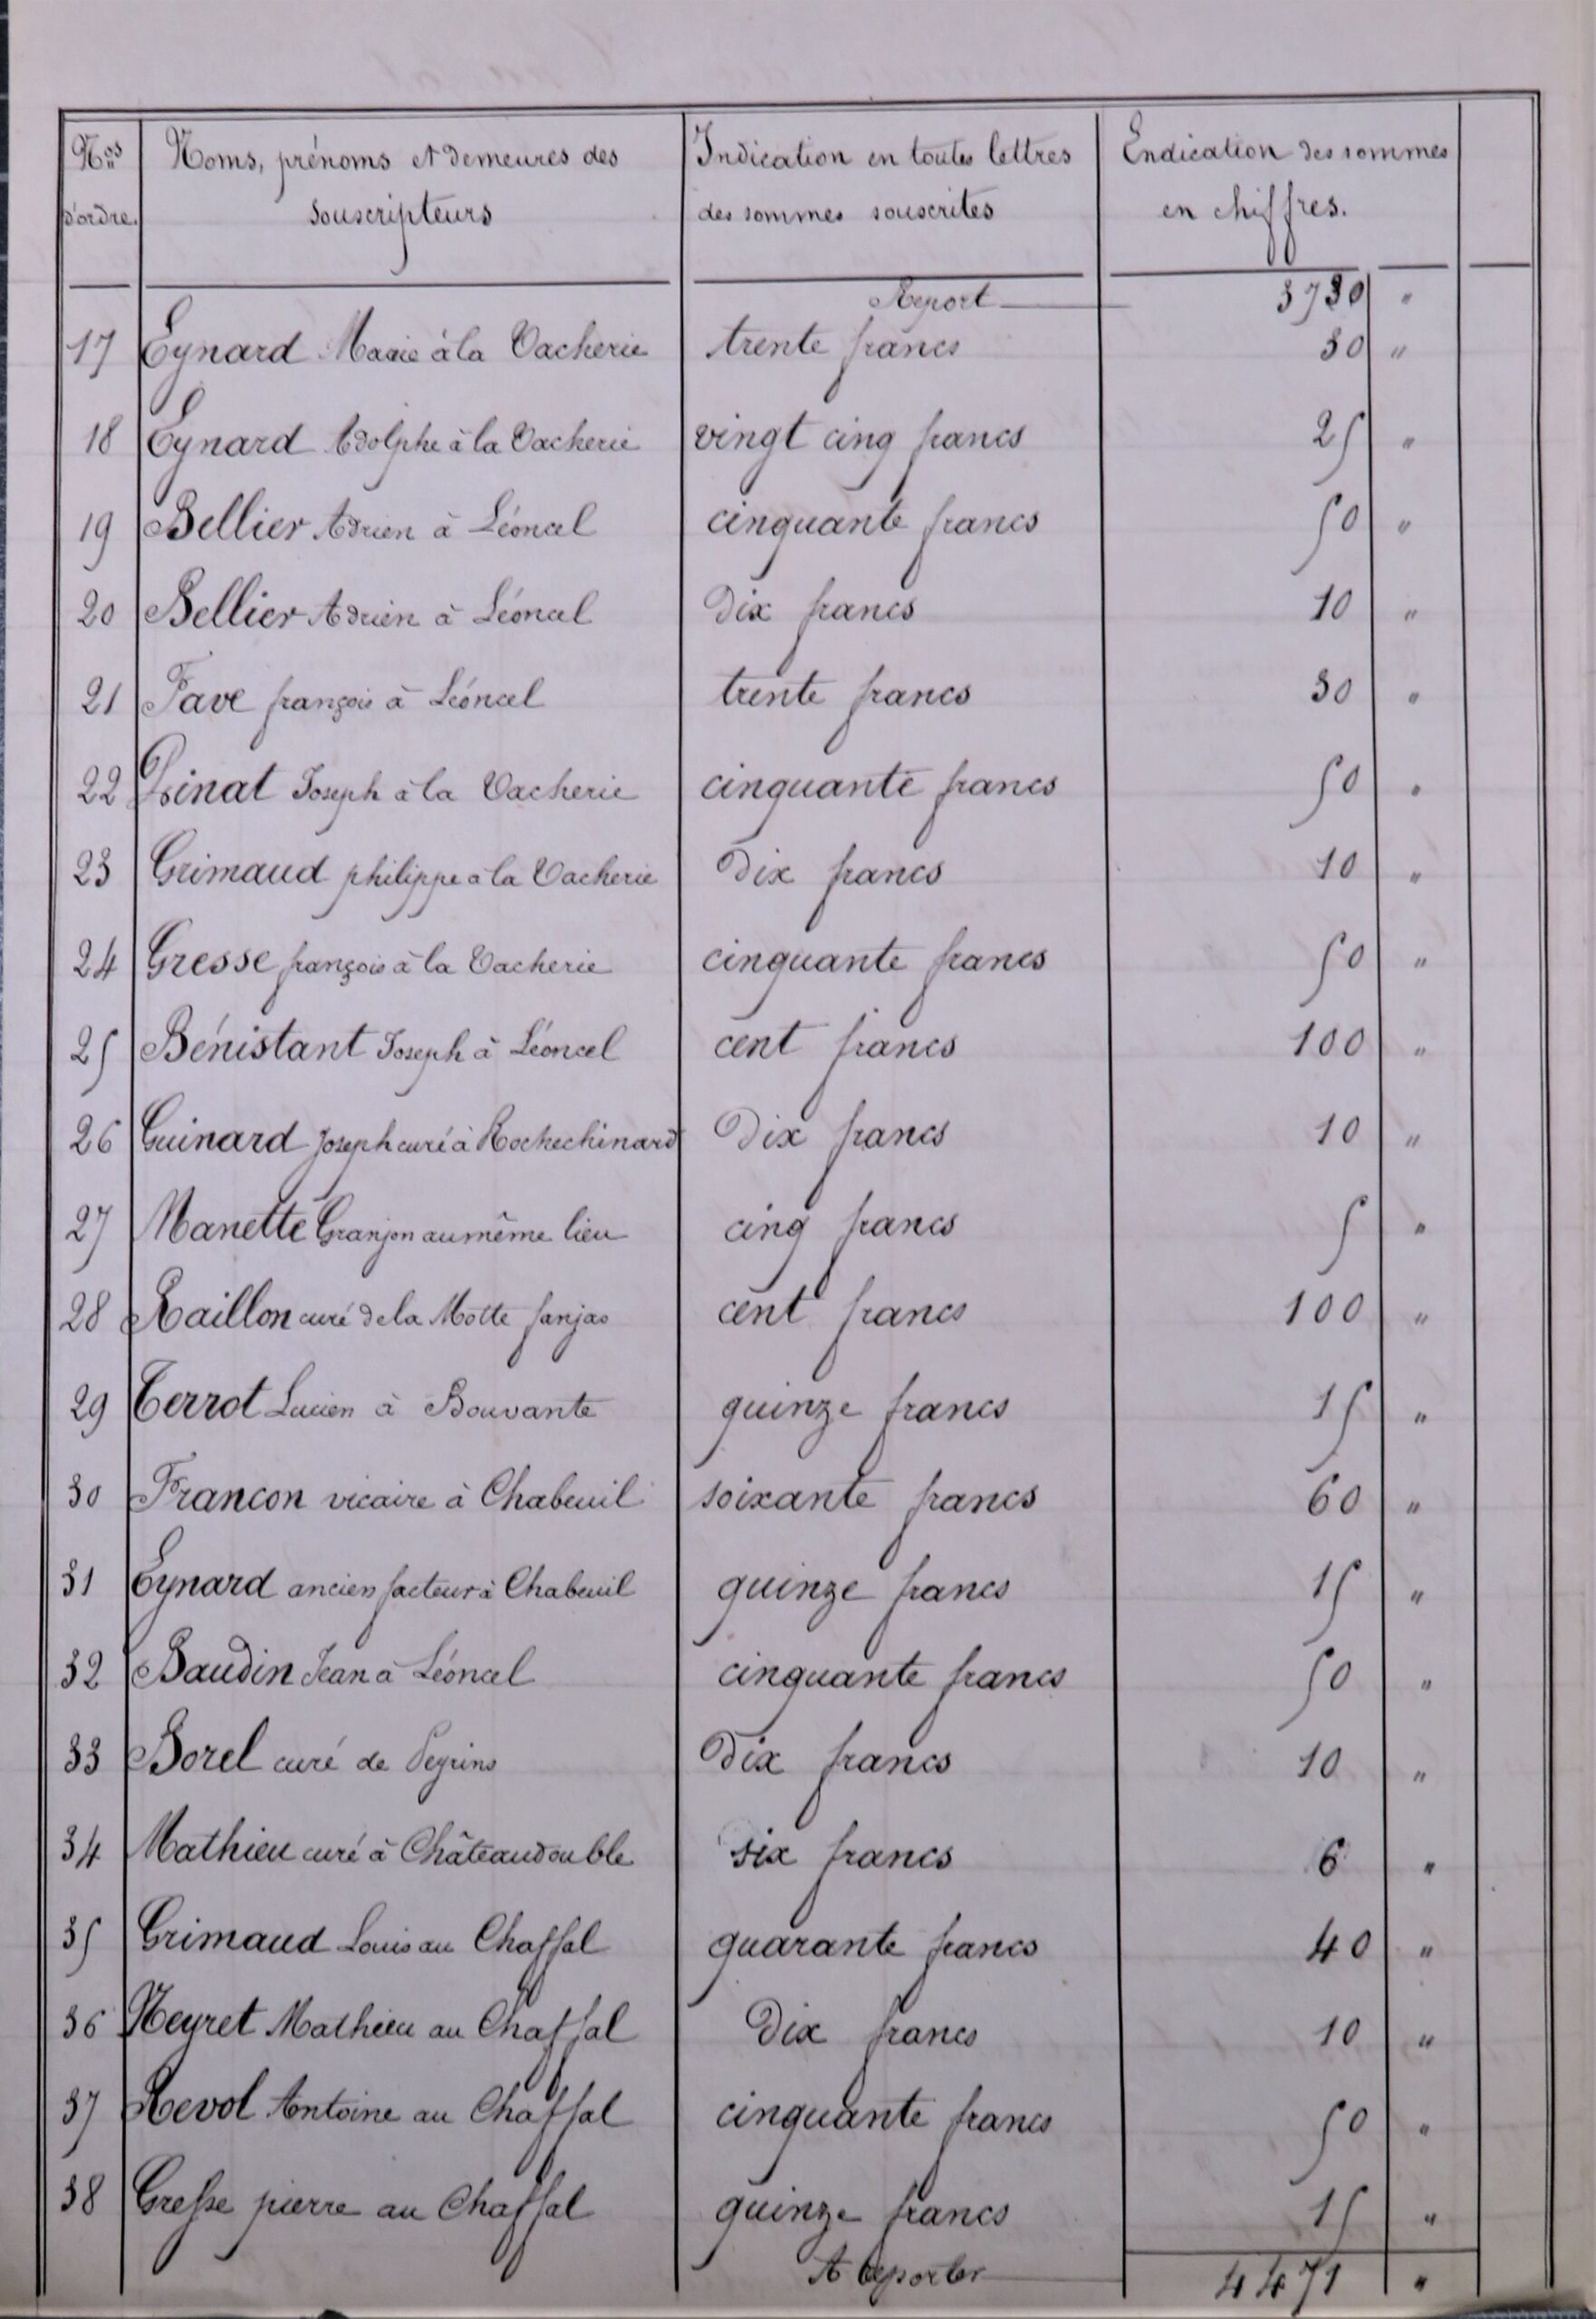 Nos Noms, prénoms et demeures des Indication en toutes lettres Indication des sommes
d'ordre. souscripteurs des sommes souscrites en chiffres.
Report 3730 "
17 Eynard Marie à la Vacherie trente francs 30 "
18 Eynard Adolphe à la Vacherie vingt cinq francs 25 "
19 Bellier Adrien à Léoncel cinquante francs 50 "
20 Bellier Adrien à Léoncel Dix francs 10 "
21 Fave françois à Léoncel trente francs 30 "
22 Pinat Joseph à la Vacherie cinquante francs 50 "
23 Grimaud philippe a la Vacherie Dix francs 10 "
24 Gresse françois à la Vacherie cinquante francs 50 "
25 Bénistant Joseph à Léoncel cent francs 100 "
26 Guinard Joseph curé à Rochechinard Dix francs 10 "
27 Manette Granjon au même lieu cinq francs 5 "
28 Raillon curé de la Motte fanjas cent francs 100 "
29 Terrot Lucien à Bouvante quinze francs 15 "
30 Francon vicaire à Chabeuil soixante francs 60 "
31 Eynard ancien facteur à Chabeuil quinze francs 15 "
32 Baudin Jean à Léoncel cinquante francs 50 "
33 Borel curé de Peyrins Dix francs 10 "
34 Mathieu curé à Châteaudouble six francs 6 "
35 Grimaud Louis au Chaffal quarante francs 40 "
36 Neyret Mathieu au Chaffal Dix francs 10 "
37 Revol Antoine au Chaffal cinquante francs 50 "
38 Gresse pierre au Chaffal quinze francs 15 "
A reporter 4471 "